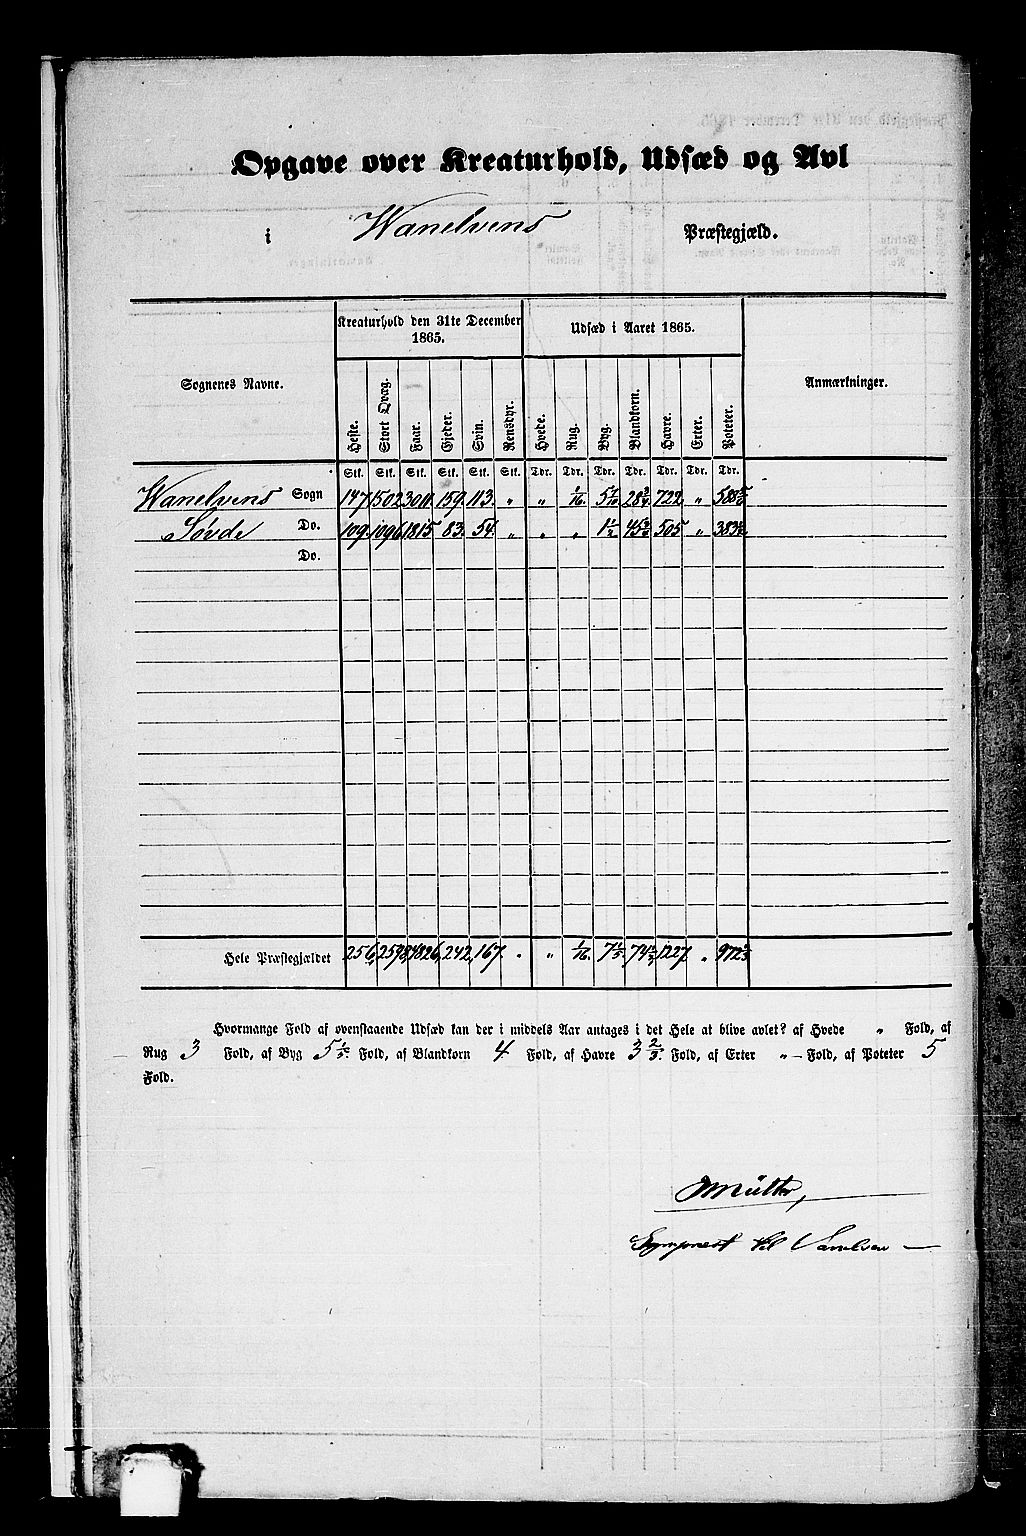 Opgave over Kreaturhold, Udsæd og Avl
i Wanelvens Præstegjæld.
Sognenes Navne. Kreaturhold den 31te December 1865. Udsæd i Aaret 1865. Anmærkninger.
Heste. Stort Qvæg. Faar. Gjeder. Svin. Rensdyr. Hvede. Rug. Byg. Blandkorn. Havre. Erter. Poteter.
Stk. Stk. Stk. Stk. Stk. Stk. Tdr. Tdr. Tdr. Tdr. Tdr. Tdr. Tdr.
Wanelvens Sogn 147. 1502 3011. 159. 113. " " 1/16. 722 "
Søvde Do. 109. 1096. 1815 83. 54. " " " 1 1/2 505 "
Do.
Hele Præstegjældet 256, 2598, 4826, 242, 167. " " 1/16. 1227. "
Hvormange Fold af ovenstaaende Udsæd kan der i middels Aar antages i det Hele at blive avlet? af Hvede " Fold, af
Rug 3 Fold, af Byg 5 1/3. Fold, af Blandkorn 4 Fold, af Havre 3 2/3. Fold, af Erter " Fold, af Poteter 5
Fold.
til Vanelven